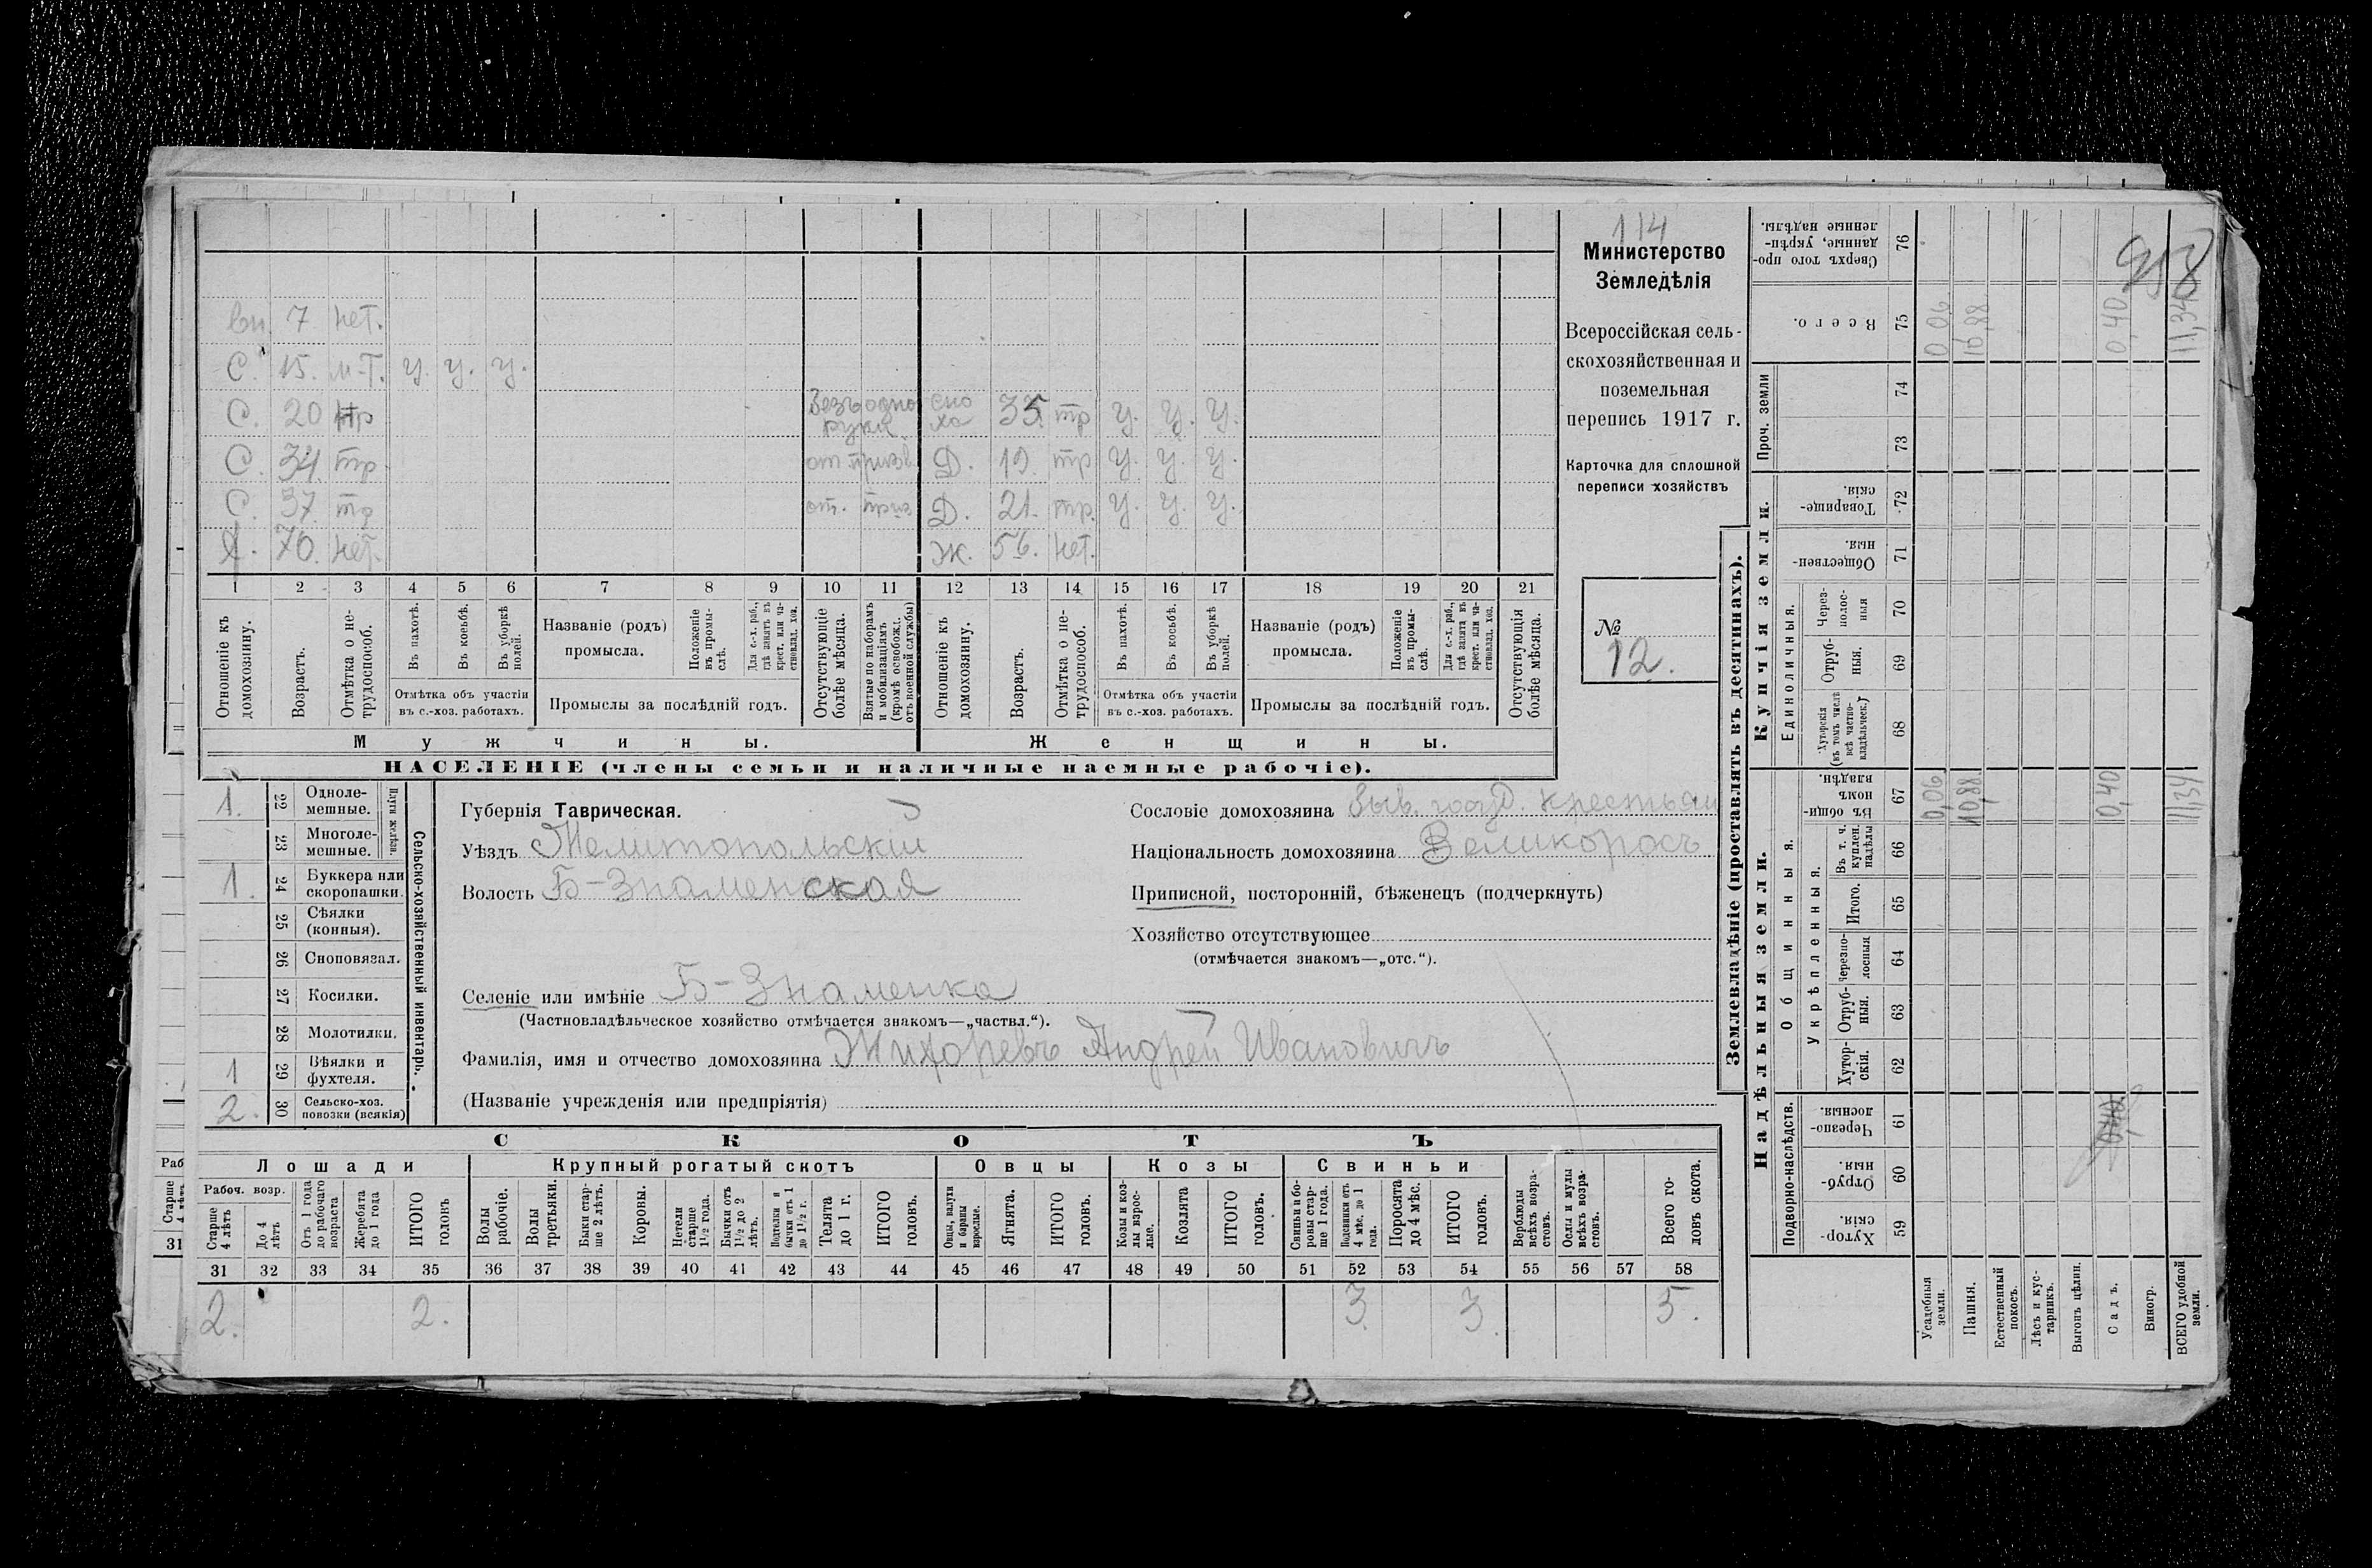 114
Министерство
Земледѣлія
Всероссійская сель-
скохозяйственная и
поземельная
перепись 1917 г.
Карточка для сплошной
переписи хозяйствъ
№
12.
953
вн. 7 нет.
С. 15. п-т. у. у. у.
С. 20 тр
сно
ха 35. тр у. у. у.
С. 34. тр Д. 19. тр у. у. у.
С. 37. тр от. приз Д. 21. тр. у. у. у.
Я. 70. нет. ж. 56. нет.
1 2 3 4 5 6 7 8 9 10 11 12 13 14 15 16 17 18 19 20 21
Отношеніе къ домохозяину.
Возрастъ.
Отмѣтка о не-трудоспособ.
Въ пахотѣ.
Въ косьбѣ.
Въ уборкѣ полей.
Отмѣтка объ участіи
въ с.-хоз. работахъ.
Названіе (родъ)
промысла.
Положеніе въ промы-слѣ.
Для с.-х. раб., гдѣ занятъ въ крест. или ча-стновлад. хоз.
Промыслы за послѣдній годъ.
Отсутствующіе болѣе мѣсяца.
Взятые по наборамъ и мобилизаціямъ (кромѣ освобожд. отъ военной службы)
Отношеніе къ домохозяину.
Возрастъ.
Отмѣтка о не-трудоспособ.
Въ пахотѣ.
Въ косьбѣ.
Въ уборкѣ полей.
Отмѣтка объ участіи
въ с.-хоз. работахъ.
Названіе (родъ)
промысла.
Положеніе въ промы-слѣ.
Для с.-х. раб., гдѣ занята въ крест. или ча-стновлад. хоз.
Промыслы за послѣдній годъ.
Отсутствующія болѣе мѣсяца.
Мужчины.
Женщины.
НАСЕЛЕНІЕ (члены семьи и наличные наемные рабочіе).
1. 22 Одноле-мешные.
23 Многоле-мешные.
Плуги желѣзн.
1. 24 Буккера или скоропашки.
25 Сѣялки (конныя).
26 Сноповязал.
27 Косилки.
28 Молотилки.
1 29 Вѣялки и фухтеля.
2. 30 Сельско-хоз. повозки (всякія)
Сельско-хозяйственный инвентарь.
Губернія Таврическая.
Уѣздъ Мелитопольскій
Волость Б-Знаменская
Селеніе или имѣніе Б-Знаменка
(Частновладѣльческое хозяйство отмѣчается знакомъ—„частвл.“).
Фамилія, имя и отчество домохозяина Жихоревъ Андрей Ивановичъ
(Названіе учрежденія или предпріятія)
Сословіе домохозяина Быв. госуд. крестьян
Національность домохозяина Великоросъ
Приписной, посторонній, бѣженецъ (подчеркнуть)
Хозяйство отсутствующее
(отмѣчается знакомъ—„отс.“).
СКОТЪ
Лошади
Крупный рогатый скотъ
Овцы
Козы
Свиньи
Рабоч. возр.
Старше 4 лѣтъ
До 4 лѣтъ
Отъ 1 года до рабочаго возраста
Жеребята до 1 года
ИТОГО головъ
Волы рабочіе.
Волы третьяки.
Быки стар-ше 2 лѣтъ.
Коровы.
Нетели старше 1½ года.
Бычки отъ 1½ до 2 лѣтъ.
Подтелки и бычки отъ 1 до 1½ г.
Телята до 1 г.
ИТОГО головъ.
Овцы, валухи и бараны взрослые.
Ягнята.
ИТОГО головъ.
Козы и коз-лы взрос-лые.
Козлята
ИТОГО головъ.
Свиньи и бо-ровы стар-ше 1 года.
Подсвинки отъ 4 мѣс. до 1 года.
Поросята до 4 мѣс.
ИТОГО головъ.
Верблюды всѣхъ возра-стовъ.
Ослы и мулы всѣхъ возра-стовъ.
Всего го-ловъ скота.
31 32 33 34 35 36 37 38 39 40 41 42 43 44 45 46 47 48 49 50 51 52 53 54 55 56 57 58
2. 2. 3. 3. 5.
Землевладѣніе (проставлять въ десятинахъ).
Надѣльныя земли.
Купчія земли.
Подворно-наслѣдств.
Общинныя.
Укрѣпленныя.
Единоличныя.
Проч. земли
Сверхъ того про-данные, укрѣп-ленные надѣлы. 76
Всего. 75 0,06 10,88 0,40 11,34
74
73
Товарище-скія. 72
Обществен-ныя. 71
Через-полос-ныя 70
Отруб-ныя. 69
Хуторскія (въ томъ числѣ всѣ частно-владѣльческ.) 68
Въ общин-номъ владѣн. 67 0,06 10,88 0,40 11,34
Въ т. ч. куплен. надѣлы 66
Итого. 65
Черезпо-лосныя 64
Отруб-ныя. 63
Хутор-скія. 62
Черезпо-лосныя. 61
Отруб-ныя. 60
Хутор-скія. 59
Усадебныя земли.
Пашня.
Естественный покосъ.
Лѣсъ и кус-тарникъ.
Выгонъ цѣлин.
Садъ.
Виногр.
ВСЕГО удобной земли.
Раб
Старше
31